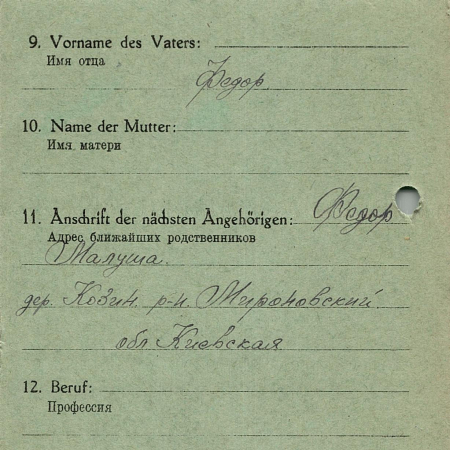 9. Vorname des Vaters:
Имя отца
Федор
10. Name der Mutter:
Имя матери
11. Anschrift der nächsten Angehörigen: Федор
Адрес ближайших родственников
Малуша.
дер. Козин. р-н. Мироновский.
обл Киевская
12. Beruf:
Профессия